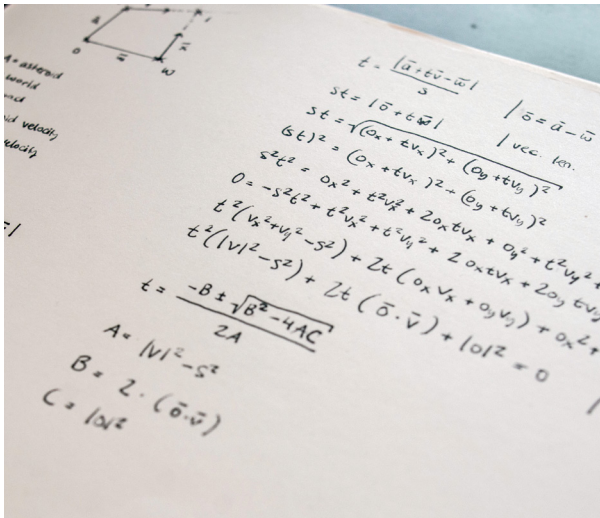 o
w
A = asteroid
world
velocity
velocity
t = |ā+tv̄-w̄| / s
| ō = ā - w̄
st = |ō + tv̄|
| vec. len.
st = √((ox+tvx)² + (oy+tvy)²)
(st)² = (ox+tvx)² + (oy+tvy)²
s²t² = ox² + t²vx² + 2oxtvx + oy² + t²vy² +
0 = -s²t² + t²vx² + t²vy² + 2oxtvx + 2oy tvy
t²(vx²+vy²-s²) + 2t(oxvx+oyvy) + ox² +
t²(|v|²-s²) + 2t(ō·v̄) + |o|² = 0
t = (-B ± √(B²-4AC)) / 2A
A = |v|²-s²
B = 2·(ō·v̄)
C = |o|²